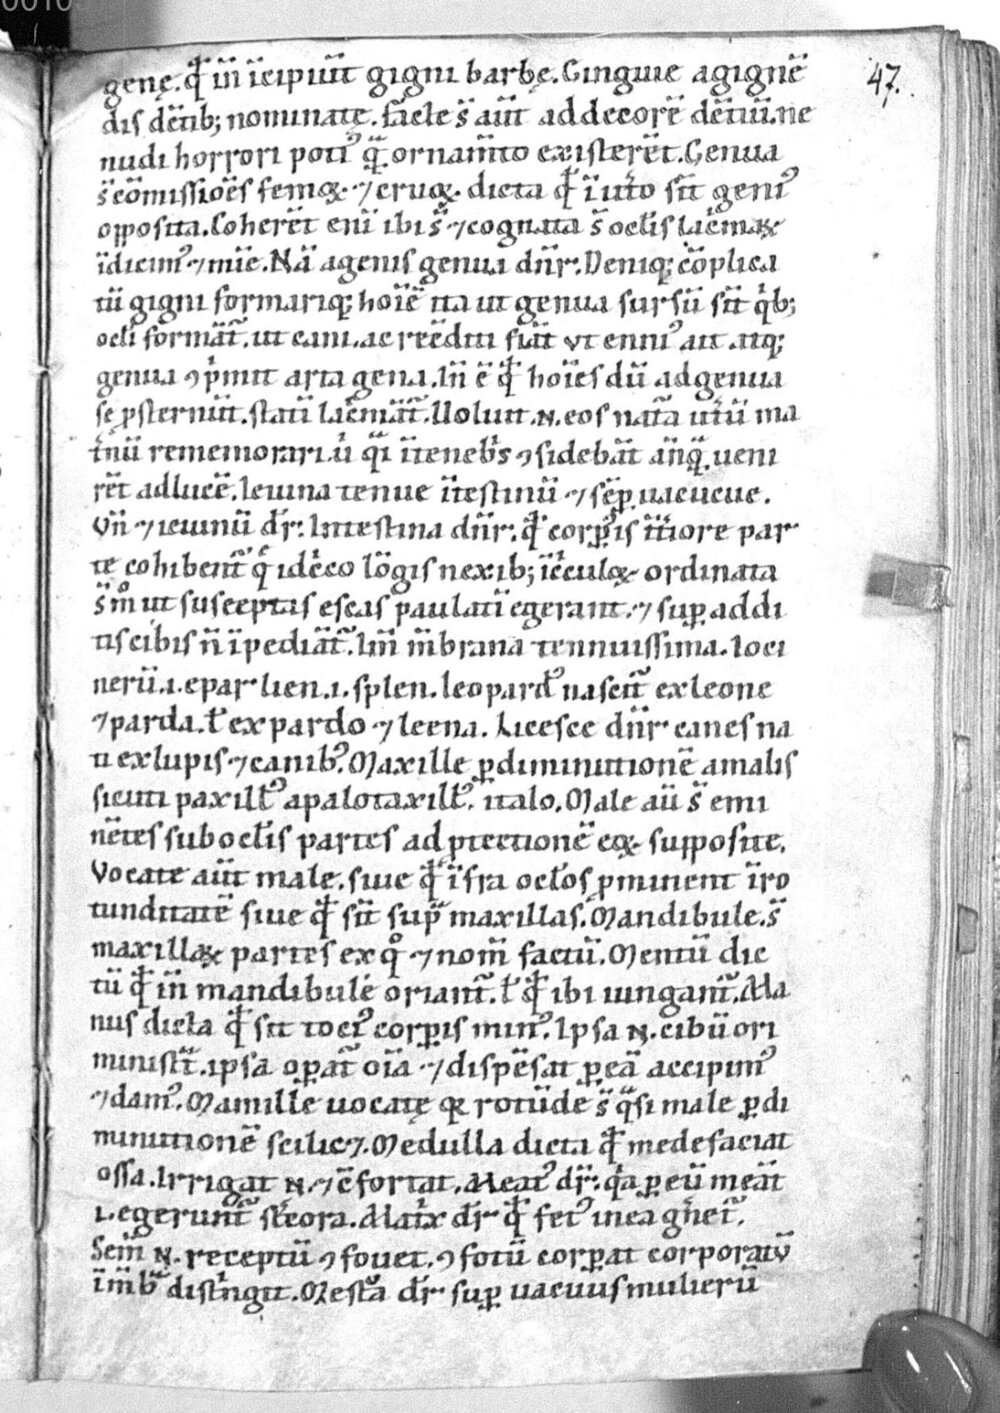 0010
47.
genę. q̄d in̄ īcipiūt gigni barbę. Gingiuie a gignē
dis dētib; nominatę. facte s̄ aūt ad decorē dētiū. ne
nudi horrori poti᾽ q̄ꝫ ornam̄to existerēt. Genua
s̄ cōmissiōes femoꝝ. ⁊ cruꝝ. dicta q̄d ī uto sīt geni᾽
opposita. Coherēt enī ibi s᷑ ⁊ cognata s̄ oclis lac̄maꝝ
īdicim᾽ ⁊ mīe. Nā a genis genua dn̄r. Deniq; cōplica
tū gigni formariq; hoīē ita ut genua sursū sīt q᷑b;
ocli format᷑. ut caui. ac recēditi fiāt vt enni᾽ ait. atq;
genua ꝯp᷑mit arta gena. In̄ ē q̄d hoīes dū ad genua
se ꝓsternūt. statī lac̄māt᷑. Uoluit .n. eos nata utīū ma
t᷑nū rememorari. u᷑ q̄i ī tenebris ꝯsidebāt an̄q̄ꝫ ueni
rēt ad lucē. Ieuina tenue ītestinū ⁊ sēꝑ uacucue.
Vn̄ ⁊ ieuinū dr̄. Intestina dn̄r. q̄d corꝑis īt᷑iore par
te cohibent᷑ q᷑ idc᷑co lōgis nexib; īc᷑culoꝝ ordinata
s̄ m° ut susceptas escas paulatī egerant. ⁊ suꝑ addi
tis cibis n̄ īpediāt᷑. Im̄ m̄brana tennuissima. Ioci
nerū .i. epar lien .i. splen. leopard᾽ nascit᷑ ex leone
⁊ parda. l᷑ ex pardo ⁊ leena. Licesce dn̄r canes na
ti ex lupis ⁊ canib᾽. Maxille ꝑ diminutionē a malis
sicuti paxill᾽ a palo taxill᾽. italo. Male aū s̄ emi
nētes sub oclis partes ad ꝓtectionē eoꝝ supposite.
Vocate aūt male. siue q̄d īfra oclos ꝓminent ī ro
tunditatē siue q̄d sīt sup᷑ maxillas. Mandibule. s̄
maxillaꝝ partes ex q° ⁊ nom̄ factū. Mentū dic
tū q̄d in̄ mandibule oriant᷑. l᷑ q̄d ibi iungant᷑. Ma
nus dicta q̄d sit toci᾽ corꝑis min᾽. Ipsa .n. cibū ori
ministr̄t. ipsa oꝑat᷑ oīa ⁊ dispēsat ꝑ eā accipim᾽
⁊ dam᾽. Mamille uocatę qꝛ rotūde s̄ q̄si male ꝑ di
minutionē scilic⁊. Medulla dicta q̄d medefaciat
ossa. Irrigat .n. ⁊ c̄fortat. Meat᾽ dr̄. q᷑a ꝑ eū meāt
.i. egerunt᷑ stc᷑ora. Mat᷑x dr̄ q̄d fet᾽ in ea gn̄et᷑.
Sem̄ .n. receptū ꝯfouet. ꝯfotū corꝑat corporatū
ī m̄b᷑ disting᷑it. Mestꝛa dr̄ suꝑ uacuus mulierū